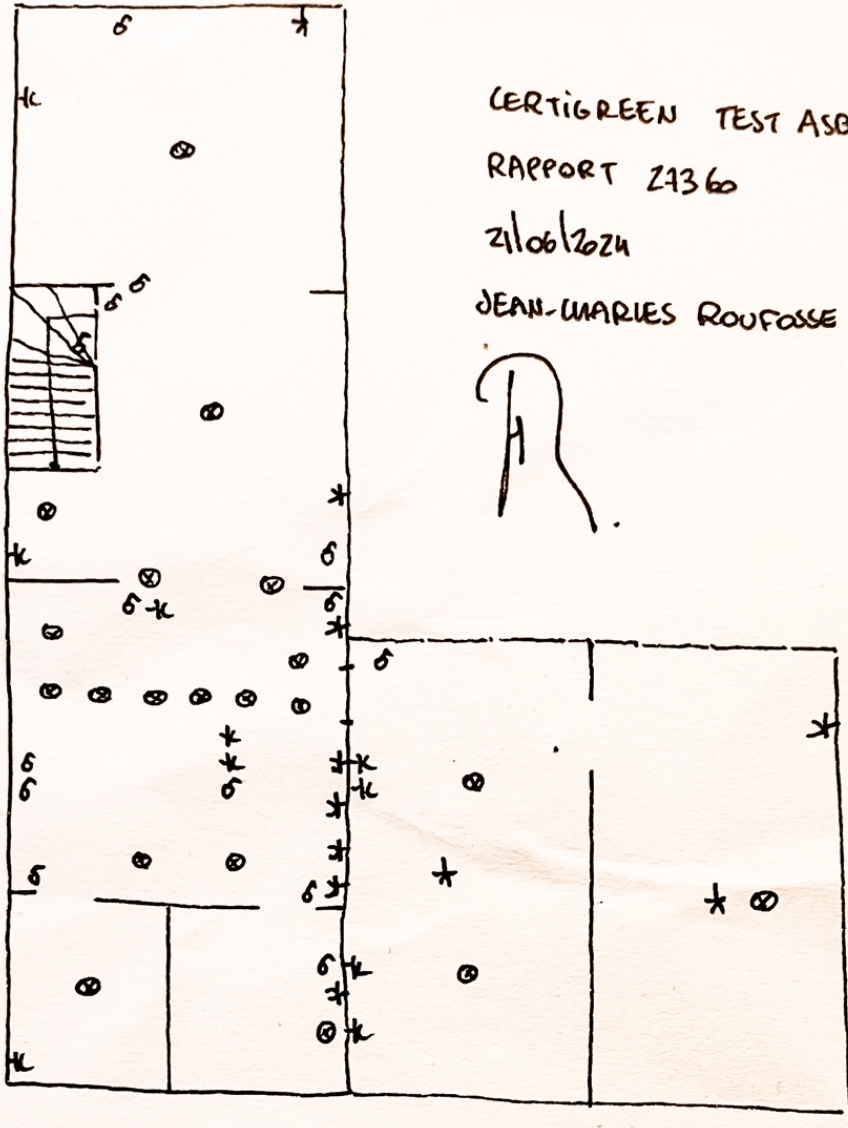 CERTIGREEN TEST ASB
RAPPORT 27360
21/06/2024
JEAN-CHARLES ROUFOSSE